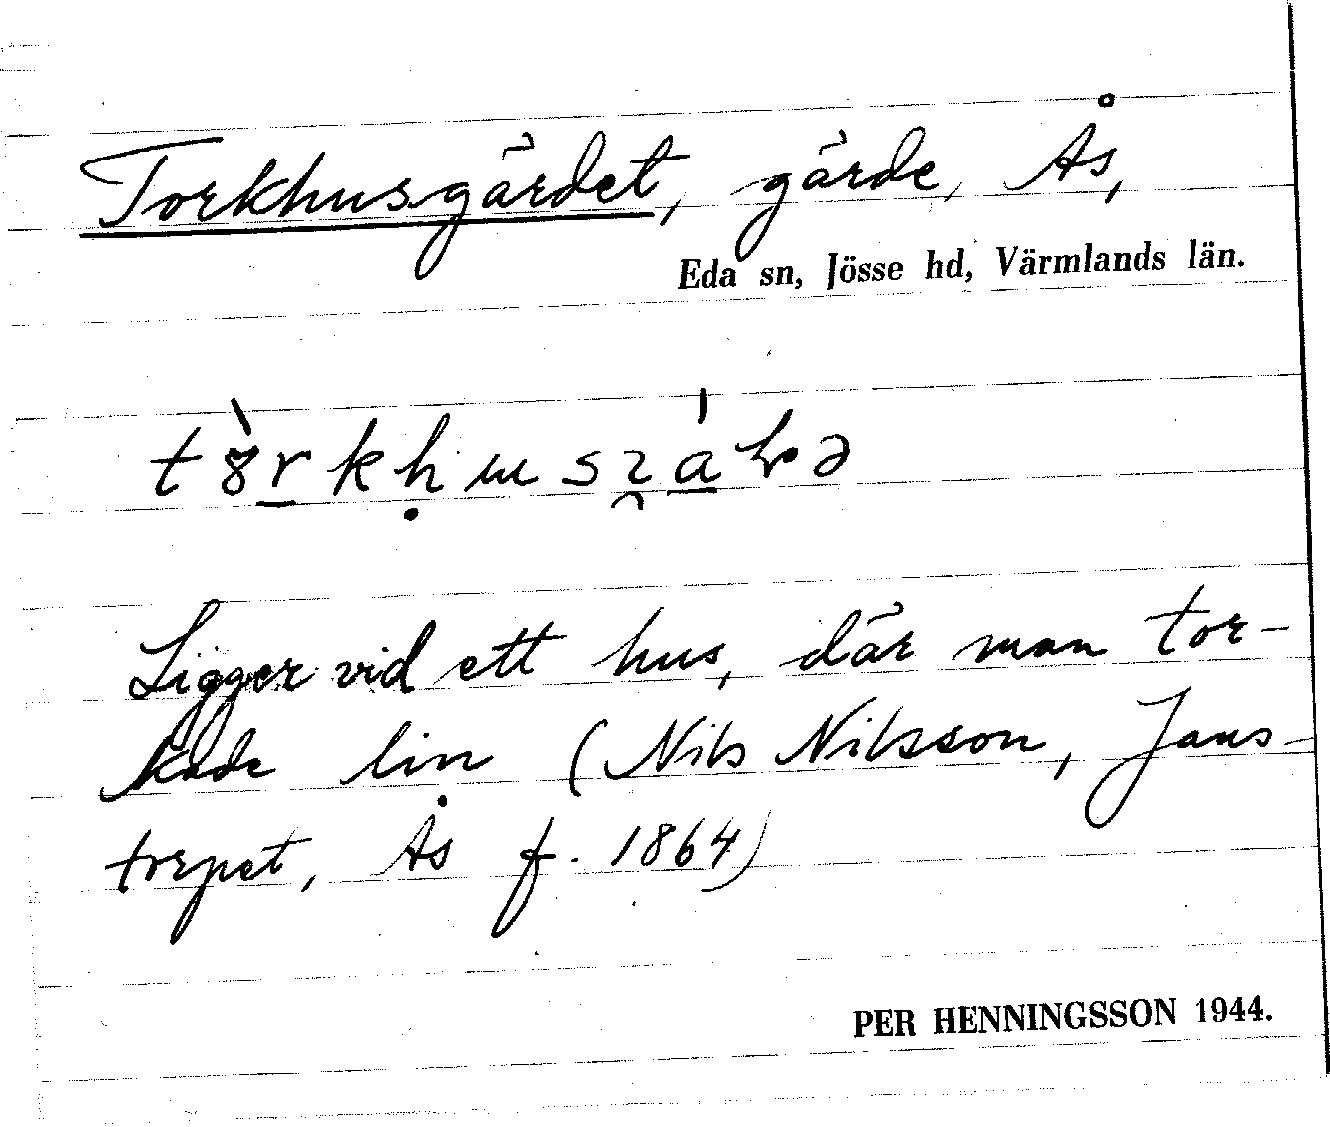 Torkhusgärdet, gärde, Ås,
Eda sn, Jösse hd, Värmlands län.
Ligger vid ett hus, där man tor-
kade lin (Nils Nilsson, Jans-
torpet, Ås f. 1864)
PER HENNINGSSON 1944.